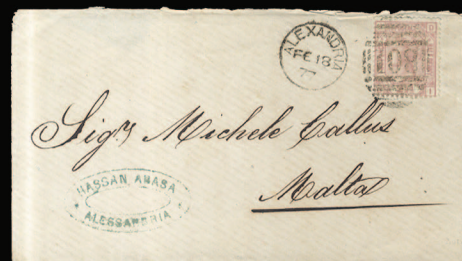 ALEXANDRIA
FE 18
77
Sigr Michele Callus
Malta
HASSAN ANASA
ALESSANDRIA